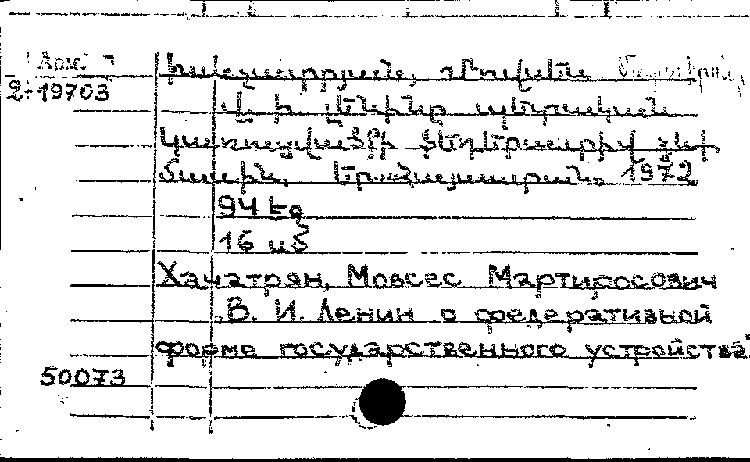 Арм
2-19703
Խաչատրյան, Մովսես
Վ. Ի. Լենինը պետական
կառուցվածքի ֆեդերատիվ ձևի
մասին. Երևան, 1972
94 էջ
16 սմ
Хачатрян, Мовсес Мартиросович
В. И. Ленин о федеративной
форме государственного устройства
50073